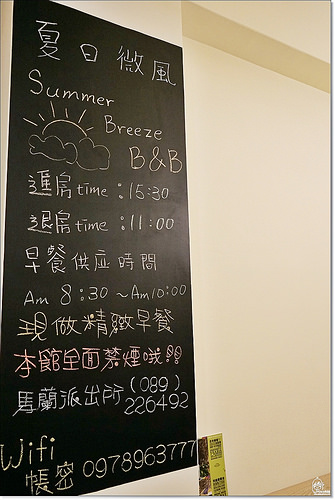 夏日微風
Summer
Breeze
B&B
進房time:15:30
退房time:11:00
早餐供应時間
Am 8:30~Am10:00
現做精緻早餐
本館全面禁煙哦!!
馬蘭派出所(089)
226492
Wifi
帳密0978963777